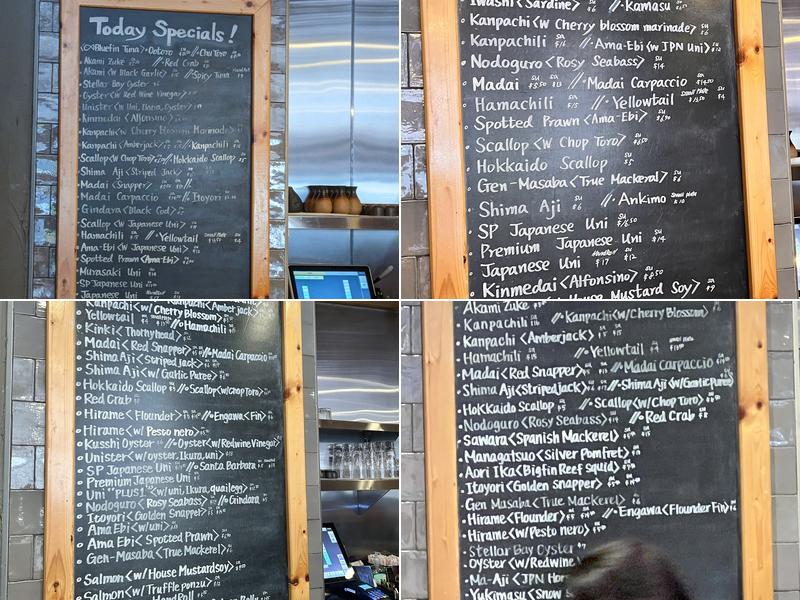 Today Specials!
<Bluefin Tuna> Ootoro // Chu Toro
Akami Zuke // Red Crab
Akami <w Black Garlic> // Spicy Tuna
Stellar Bay Oyster
Oyster <w Red Wine Vinegar>
Unister <w Uni, Ikura, Oyster>
Kinmedai <Alfonsino>
Kanpachi <w Cherry Blossom Marinade>
Kanpachi <Amberjack> // Kanpachili
Scallop <w Chop Toro> // Hokkaido Scallop
Shima Aji <Striped Jack>
Madai <Snapper>
Madai Carpaccio // Itoyori
Gindara <Black Cod>
Scallop <w Japanese Uni>
Hamachili // Yellowtail
Ama-Ebi <w Japanese Uni>
Spotted Prawn <Ama-Ebi>
Murasaki Uni
SP Japanese Uni
Japanese Uni
Iwashi <Sardine> // Kamasu
Kanpachi <w Cherry blossom marinade>
Kanpachili // Ama-Ebi <w JPN Uni>
Nodoguro <Rosy Seabass> $14
Madai // Madai Carpaccio
Hamachili // Yellowtail
Spotted Prawn <Ama-Ebi>
Scallop <w Chop Toro>
Hokkaido Scallop $5
Gen-Masaba <True Mackeral> $6
Shima Aji $6 // Ankimo
SP Japanese Uni
Premium Japanese Uni $14
Japanese Uni $17 $12
Kinmedai <Alfonsino>
House Mustard Soy> $9
Kanpachi <w/Cherry Blossom> Kanpachi <Amberjack>
Yellowtail // Hamachili
Kinki <Thornyhead>
Madai <Red Snapper> // Madai Carpaccio
Shima Aji <Striped Jack>
Shima Aji <w/Garlic Puree>
Hokkaido Scallop // Scallop <w/chop Toro>
Red Crab
Hirame <Flounder> // Engawa <Fin>
Hirame <w/Pesto nero>
Kusshi Oyster // Oyster <w/Redwine Vinegar>
Unister <w/oyster, Ikura, uni>
SP Japanese Uni // Santa Barbara
Premium Japanese Uni
Uni "PLUS" <w/uni, Ikura, quail egg>
Nodoguro <Rosy Seabass> // Gindara
Itoyori <Golden Snapper>
Ama Ebi <w/uni>
Ama Ebi <Spotted Prawn>
Gen-Masaba <True Mackerel>
Salmon <w/House Mustardsoy>
Salmon <w/Truffle ponzu>
Hand Roll
Akami Zuke
Kanpachili // Kanpachi <w/Cherry Blossom>
Kanpachi <Amberjack>
Hamachili // Yellowtail
Madai <Red Snapper> // Madai Carpaccio
Shima Aji <Striped jack> // Shima Aji <w/Garlic Puree>
Hokkaido Scallop // Scallop <w/Chop Toro>
Nodoguro <Rosy Seabass> // Red Crab
Sawara <Spanish Mackerel>
Managatsuo <Silver Pomfret>
Aori Ika <Bigfin Reef squid>
Itoyori <Golden Snapper>
Gen Masaba <True Mackerel>
Hirame <Flounder> // Engawa <Flounder Fin>
Hirame <w/Pesto nero>
Stellar Bay Oyster
Oyster <w/Redwine
Ma-Aji <JPN Hor
Yukimasu <Snow